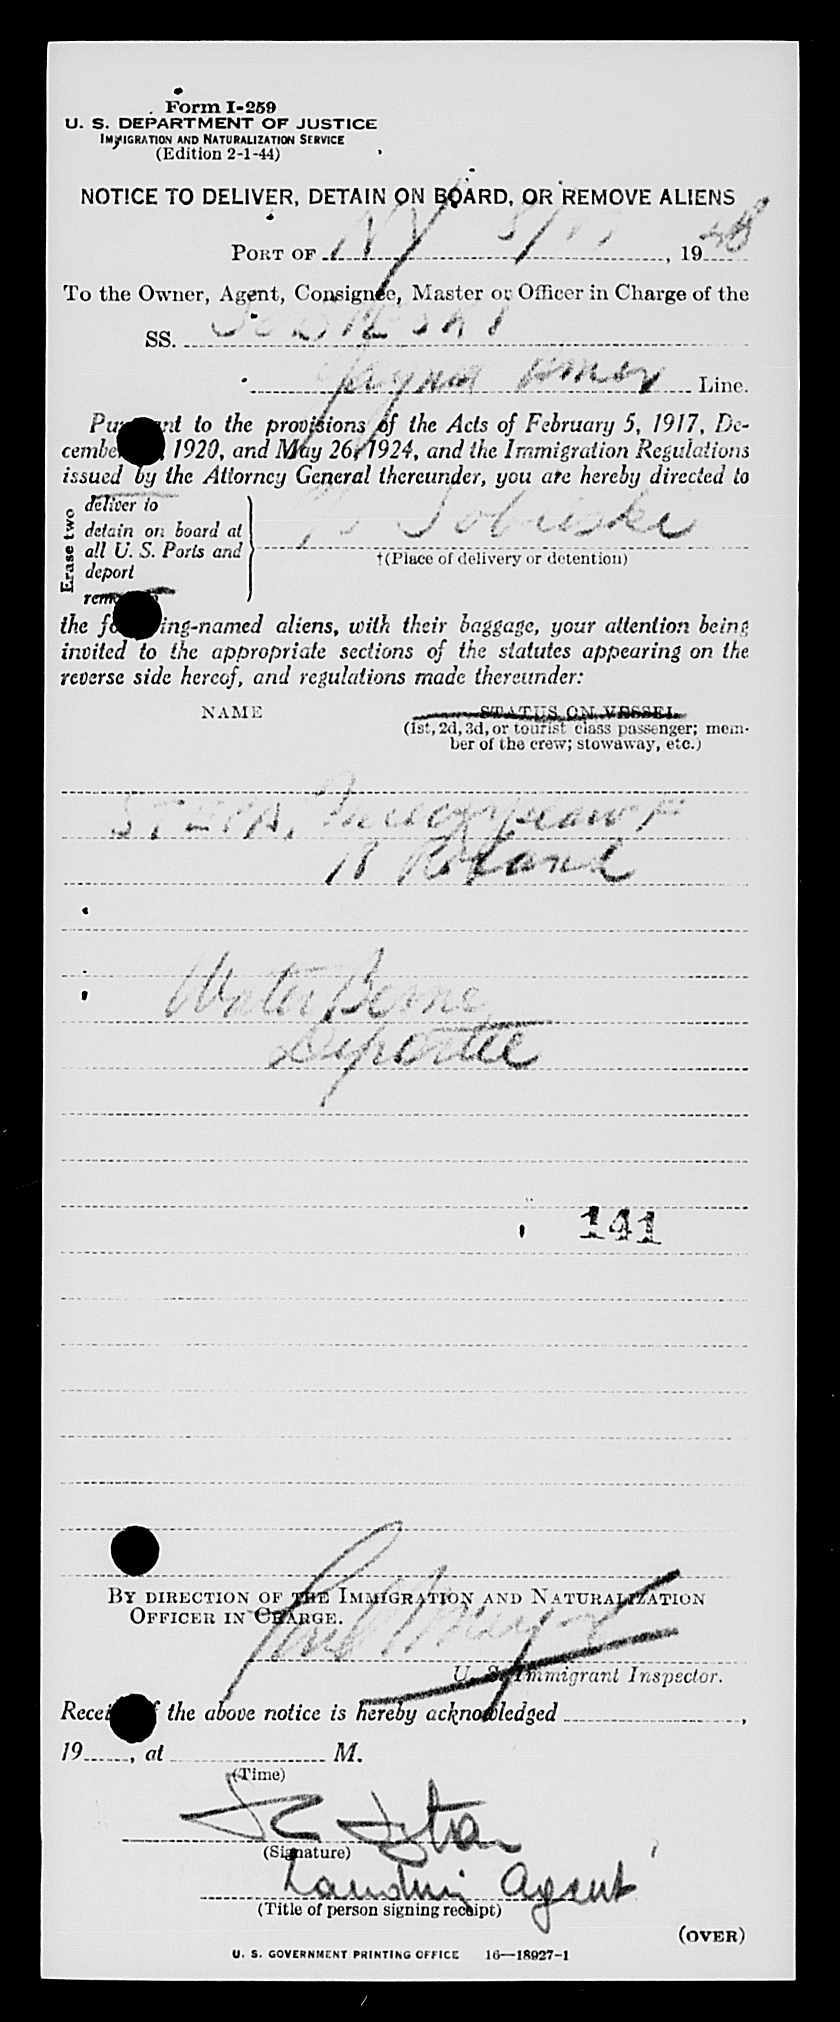 Form I-259
U. S. DEPARTMENT OF JUSTICE
IMMIGRATION AND NATURALIZATION SERVICE
(Edition 2-1-44)
NOTICE TO DELIVER, DETAIN ON BOARD, OR REMOVE ALIENS
PORT OF NY 8/17, 1948
To the Owner, Agent, Consignee, Master or Officer in Charge of the
SS. SOBIESKI
Line.
Pu nt to the provisions of the Acts of February 5, 1917, De-
cembe , 1920, and May 26, 1924, and the Immigration Regulations
issued by the Attorney General thereunder, you are hereby directed to
Erase two
deliver to
detain on board at
all U. S. Ports and
deport
remove
Sobieski
†(Place of delivery or detention)
the fo ing-named aliens, with their baggage, your attention being
invited to the appropriate sections of the statutes appearing on the
reverse side hereof, and regulations made thereunder:
NAME
STATUS ON VESSEL
(1st, 2d, 3d, or tourist class passenger; mem-
ber of the crew; stowaway, etc.)
Deportee
141
BY DIRECTION OF THE IMMIGRATION AND NATURALIZATION
OFFICER IN CHARGE.
U. S. Immigrant Inspector.
Recei f the above notice is hereby acknowledged ,
19 , at M.
(Time)
(Signature)
Landing Agent
(Title of person signing receipt)
(OVER)
U. S. GOVERNMENT PRINTING OFFICE 16—18927-1